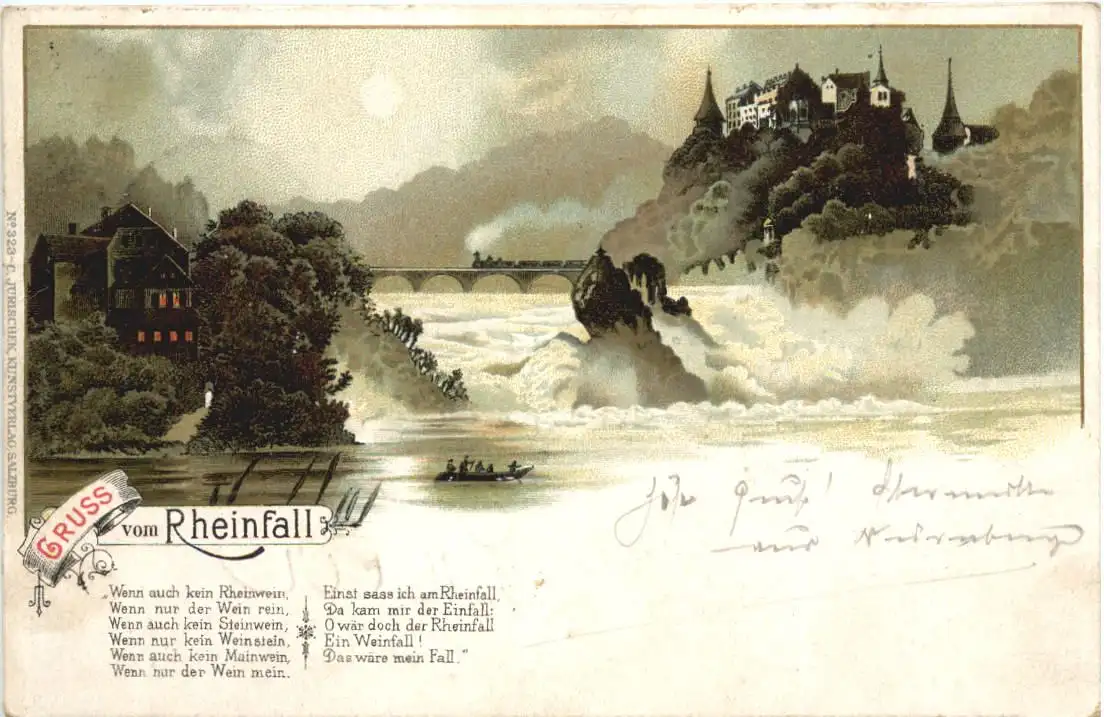 GRUSS
vom Rheinfall
„Wenn auch kein Rheinwein,
Wenn nur der Wein rein,
Wenn auch kein Steinwein,
Wenn nur kein Weinstein,
Wenn auch kein Mainwein,
Wenn nur der Wein mein.
Einst sass ich am Rheinfall,
Da kam mir der Einfall:
O wär doch der Rheinfall
Ein Weinfall!
Das wäre mein Fall."
Gruß!
aus Nürnberg
No 323-C. JURISCHEK, KUNSTVERLAG SALZBURG.